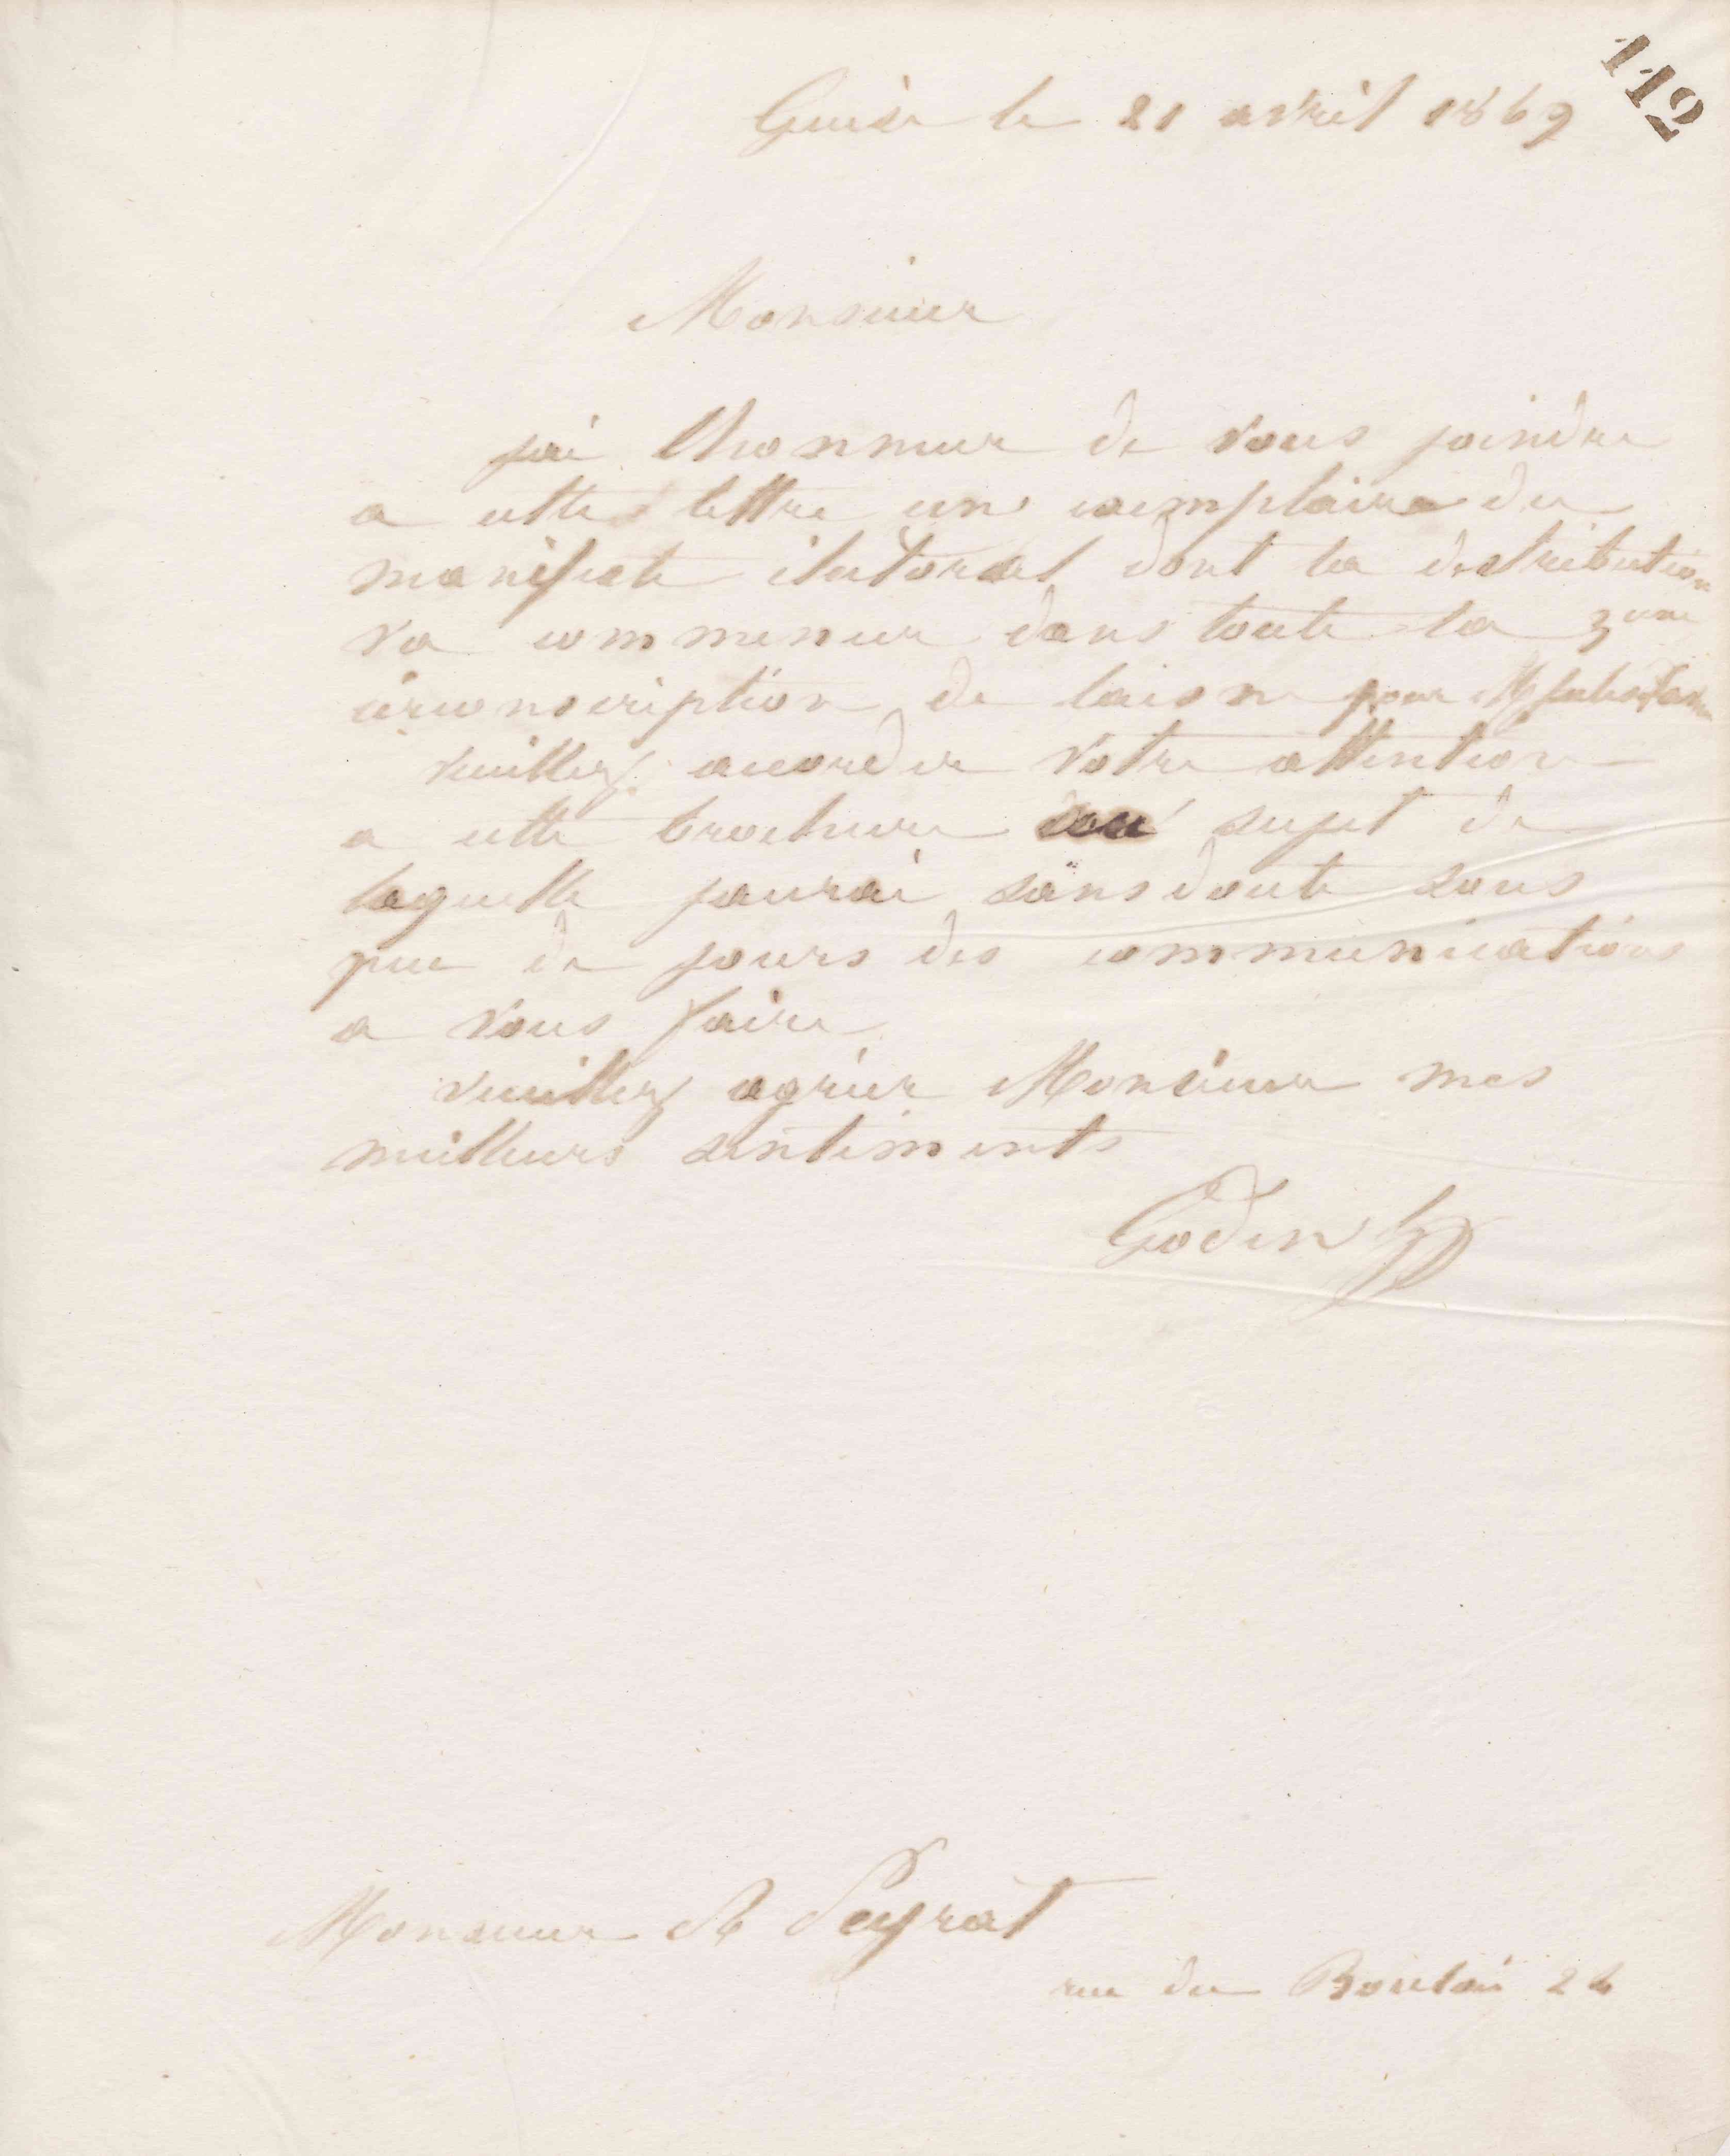 112
Guise le 21 avril 1869
Monsieur
jai lhonneur de vous joindre
a cette lettre un exemplaire du
manifeste électoral dont la distribution
va commencer dans toute la 3eme
circonscription de laisne pour M Jules Favre
veuillez accorder votre attention
a cette brochure au sujet de
laquelle jaurai sans doute sous
peu de jours des communications
a vous faire
veuillez agréer Monsieur mes
meilleurs sentiments
Godin
Monsieur A Peyrat
rue du Bouloi 24